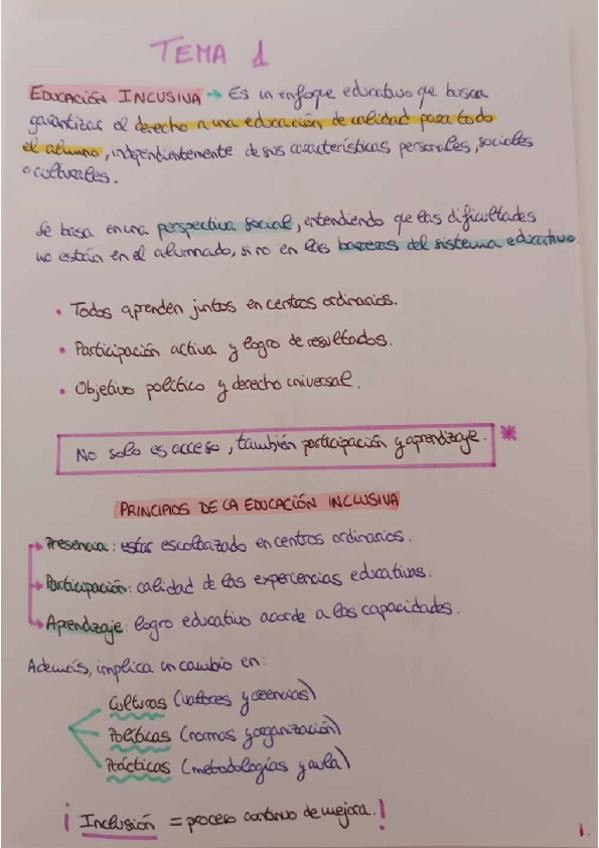 TEMA 1
EDUCACIÓN INCLUSIVA → Es un enfoque educativo que busca
garantizar el derecho a una educación de calidad para todo
el alumno, independientemente de sus características personales, sociales
o culturales.
Se basa en una perspectiva social, entendiendo que las dificultades
no están en el alumnado, sino en las barreras del sistema educativo.
• Todos aprenden juntos en centros ordinarios.
• Participación activa y logro de resultados.
• Objetivo político y derecho universal.
No solo es acceso, también participación y aprendizaje. *
PRINCIPIOS DE LA EDUCACIÓN INCLUSIVA
→ Presencia: estar escolarizado en centros ordinarios.
→ Participación: calidad de las experiencias educativas.
→ Aprendizaje: logro educativo acorde a las capacidades.
Además, implica un cambio en:
Culturas (valores y creencias)
Políticas (normas y organización)
Prácticas (metodologías y aula)
¡ Inclusión = proceso continuo de mejora. !
1.